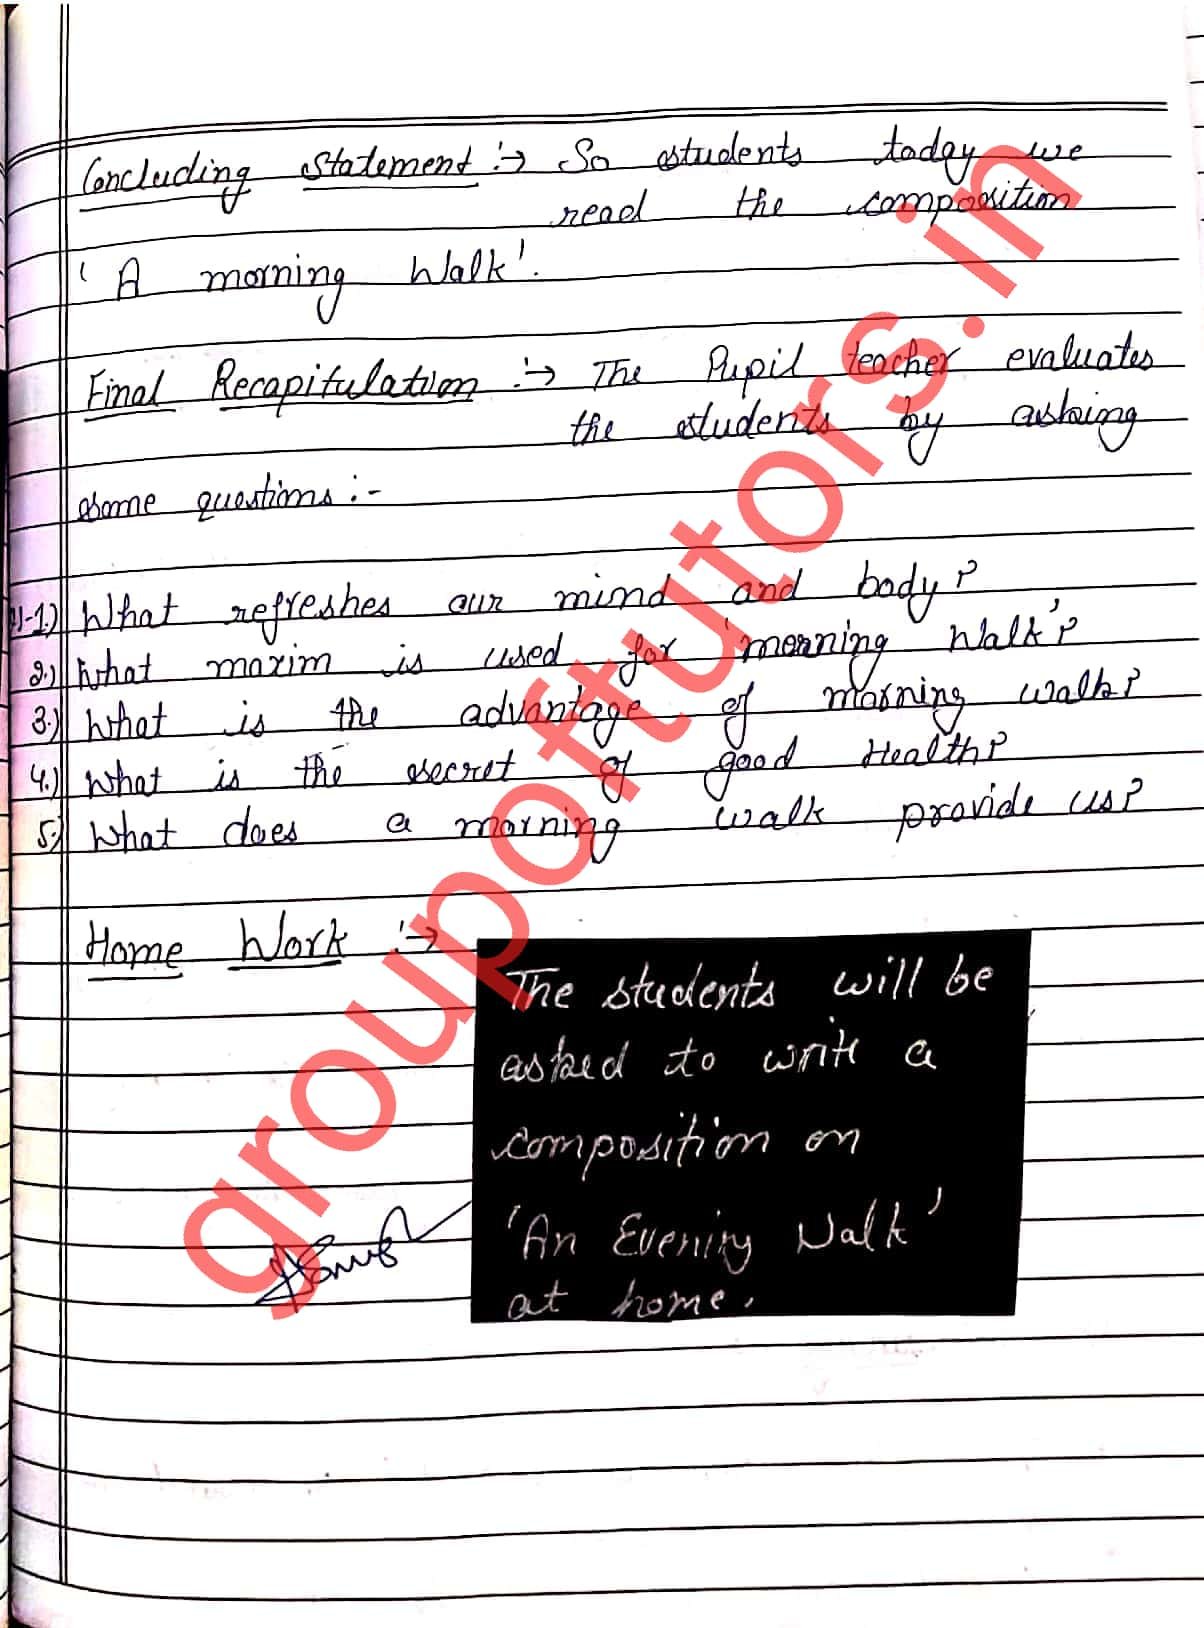 Concluding Statement :→ So students today we
read the composition
'A morning Walk'.
Final Recapitulation :→ The Pupil teacher evaluates
the students by asking
some questions :-
1.) What refreshes our mind and body?
2.) What maxim is used for 'morning Walk'?
3.) What is the advantage of morning walk?
4.) What is the secret of good Health?
5.) What does a morning walk provide us?
Home Work :→
The students will be
asked to write a
composition on
'An Evening Walk'
at home.
groupoftutors.in